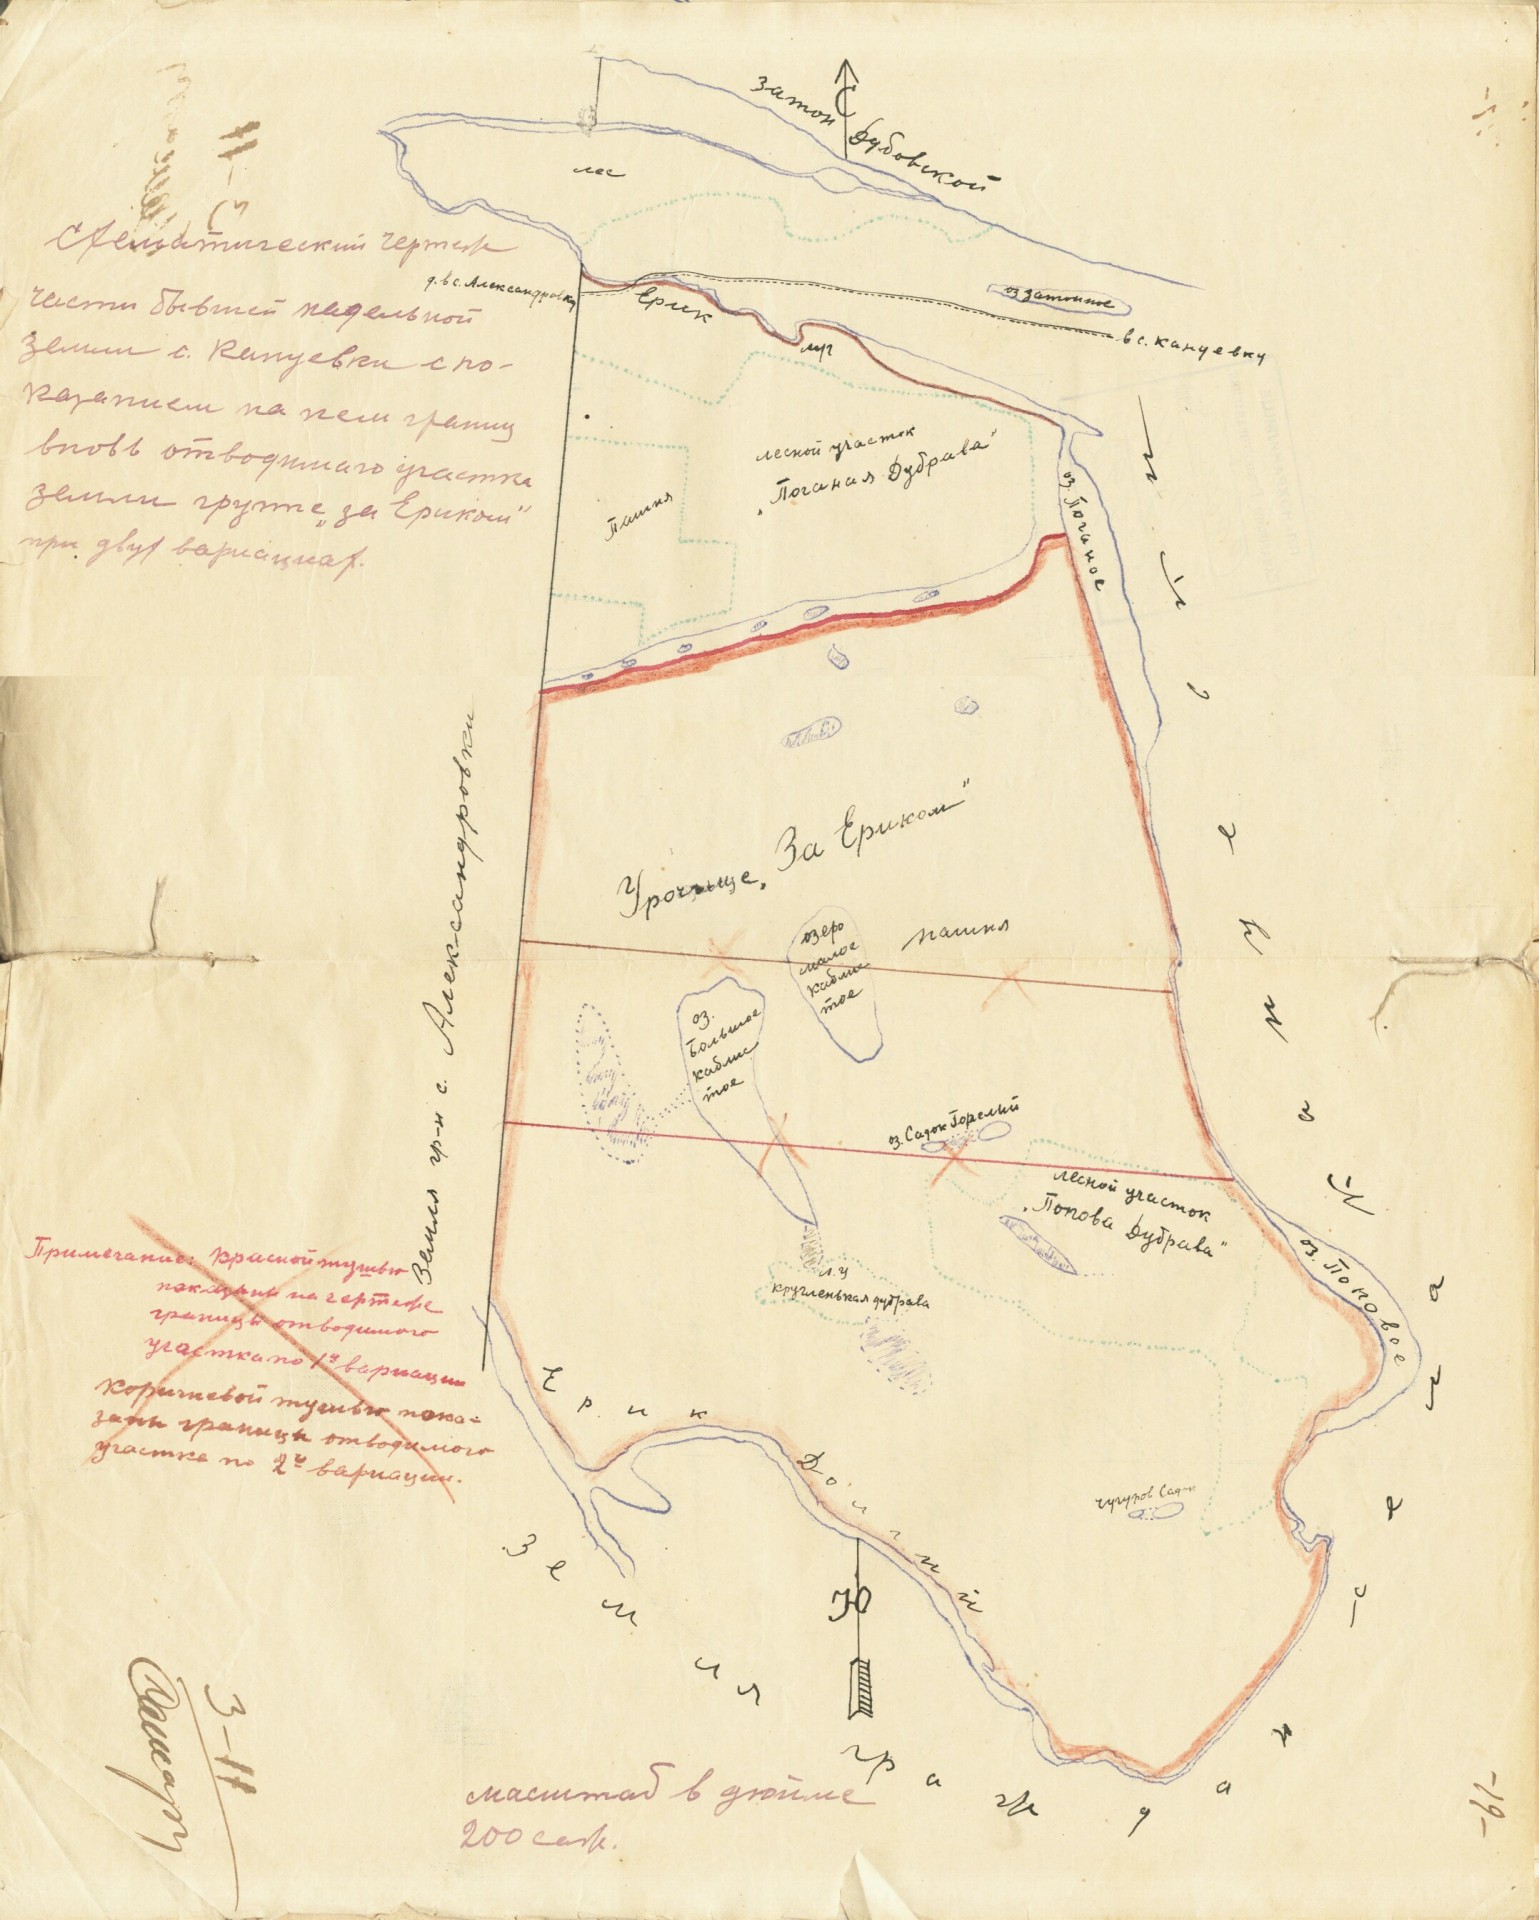 С
Затон Дубовской
лес
Схематический чертеж
части бывшей надельной
земли с. Кануевки с по-
казанием на нем границ
вновь отводимаго участка
земли группе "за Ериком"
при двух вариациях.
д. в с. Александровку
Ерик
оз затонное
в с. Кануевку
лесной участок
"Поганая Дубрава"
Пашня
оз. Поганое
Урочище "За Ериком"
озеро
малое
кабли
тое
пашня
оз.
Большое
кабли
тое
Земля гр-н с. Александровки
оз. Садок Горелый
лесной участок
"Попова Дубрава"
оз. Поповое
л. у
кругленькая дубрава
Примечание: Красной тушью
показаны на чертеже
границы отводимого
участка по 1й вариации
Коричневой тушью пока=
заны границы отводимого
участка по 2й вариации.
Ерик Долгий
Садок
Ю
Земля граждан
масштаб в дюйме
200 саж.
3-11
-19-